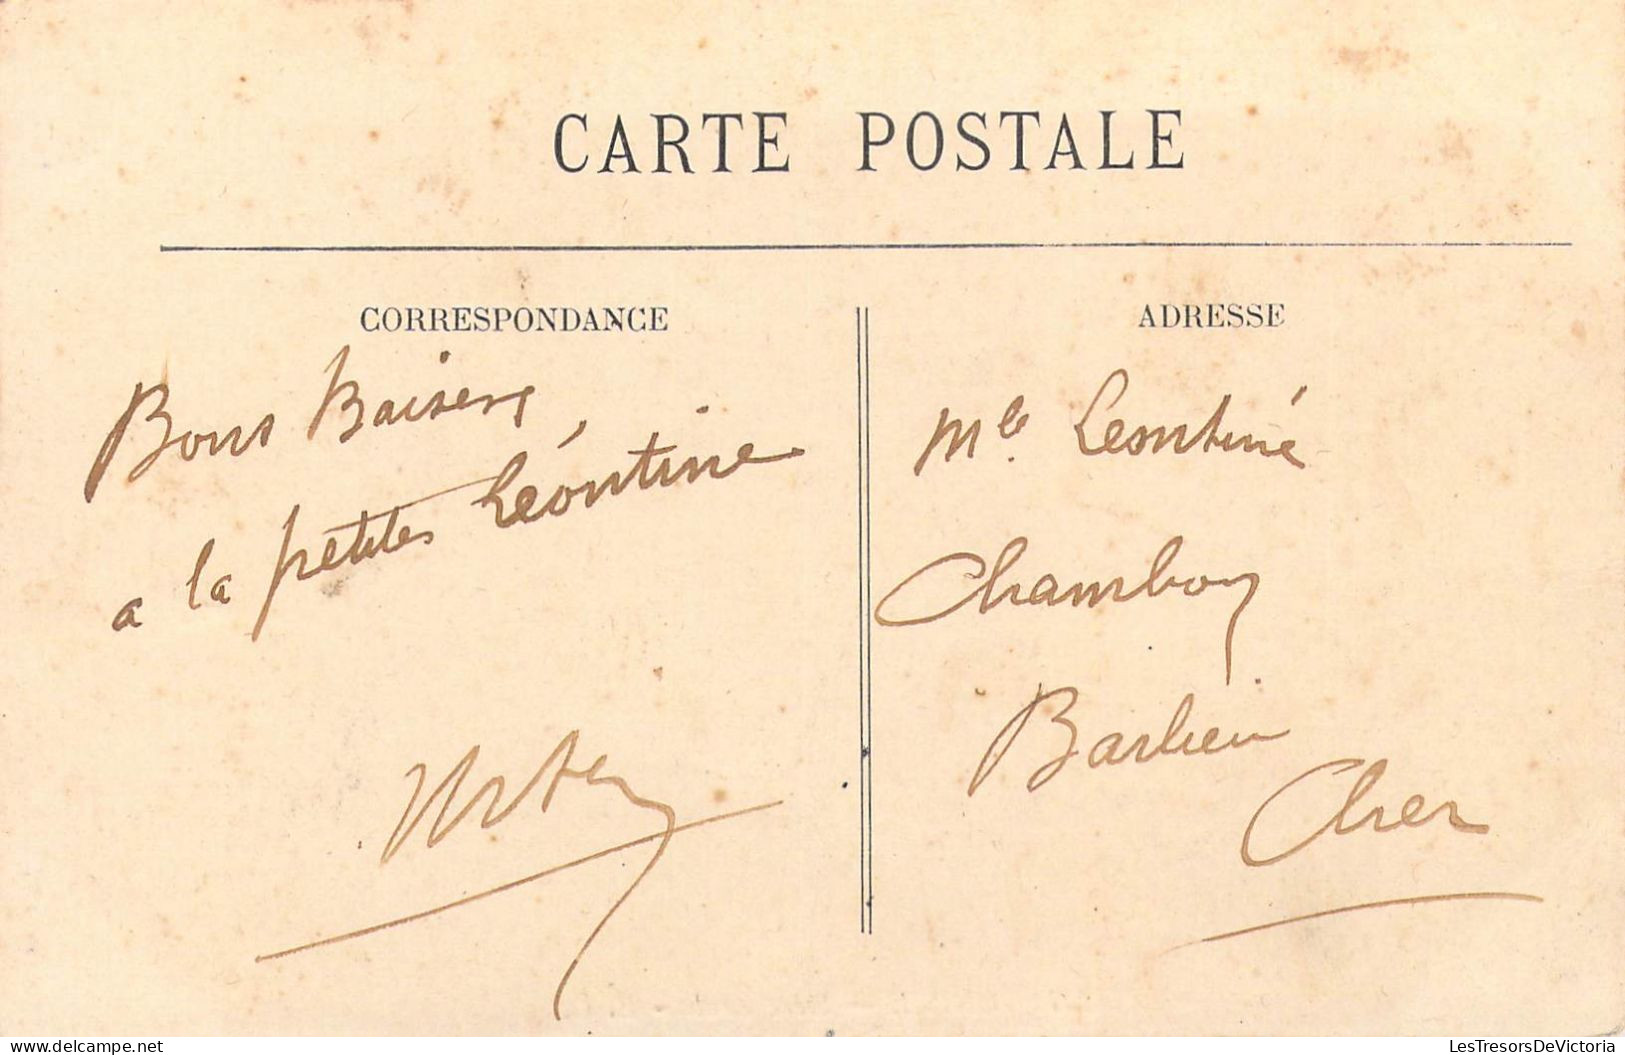 CARTE POSTALE
CORRESPONDANCE
Bons Baisers
a la petites Léontine
ADRESSE
Mle. Leontiné
Chambon
Barlieu
Cher
LesTresorsDeVictoria